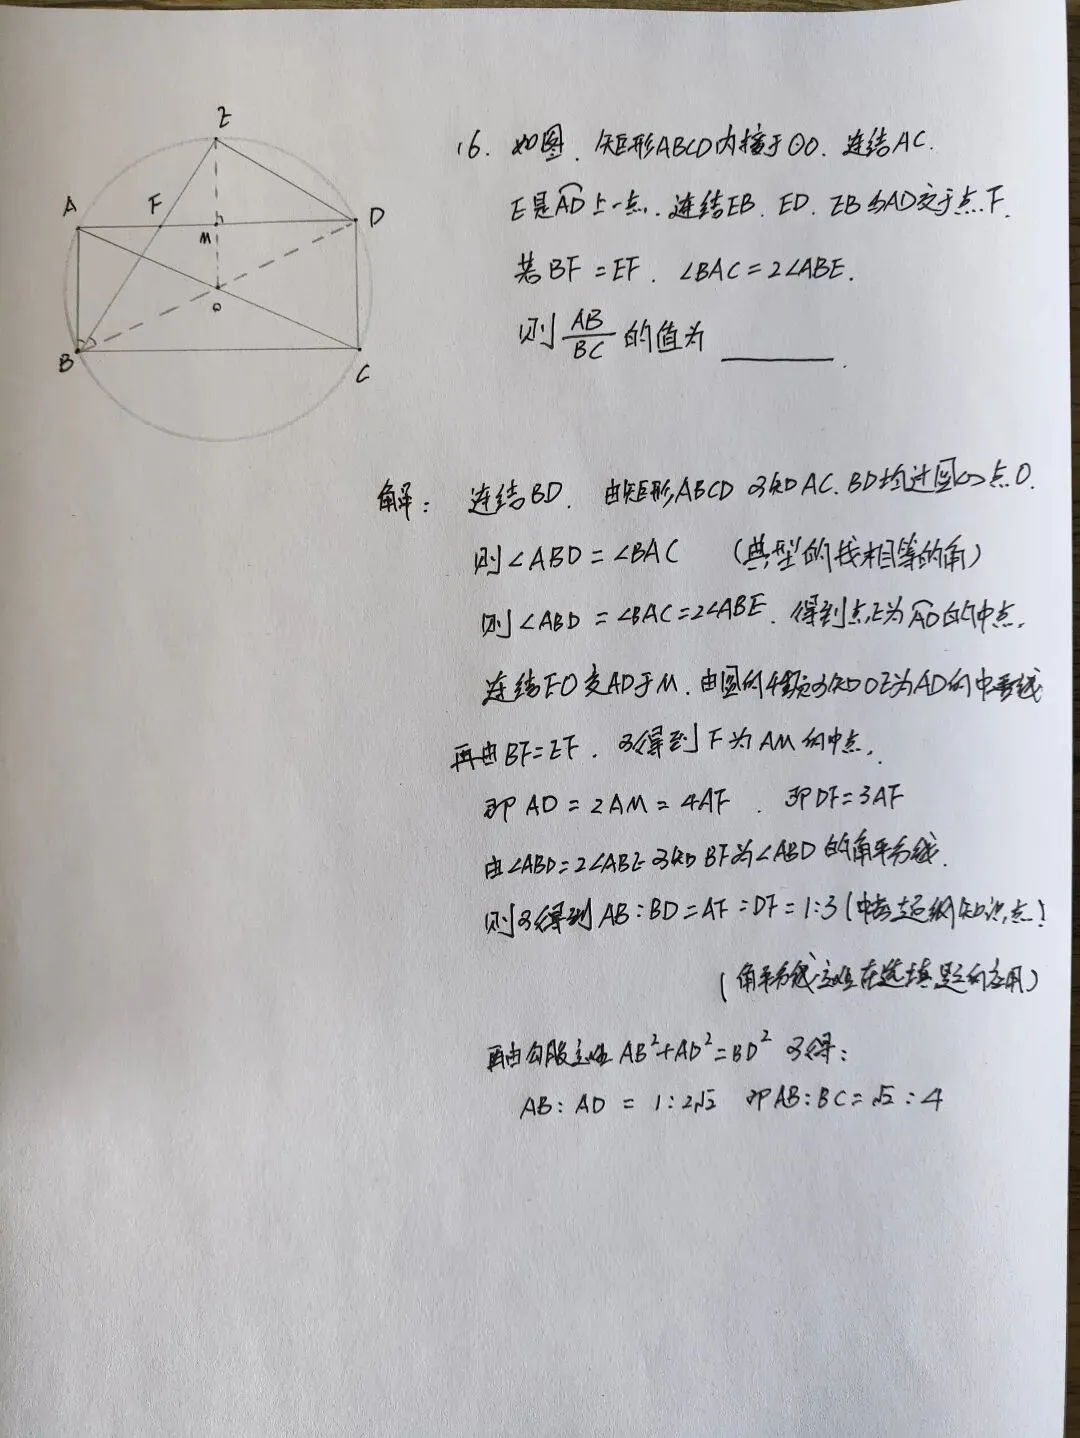 E
A
F
D
M
O
B
C
16. 如图. 矩形ABCD内接于⊙O. 连结AC.
E是AD上一点. 连结EB. ED. EB与AD交于点F.
若BF=EF. ∠BAC=2∠ABE.
则 AB/BC 的值为 ______.
解: 连结BD. 由矩形ABCD可知AC.BD均过圆心点O.
则∠ABD=∠BAC (典型的找相等的角)
则∠ABD=∠BAC=2∠ABE. 得到点E为AD的中点.
连结EO交AD于M. 由圆的性质可知OE为AD的中垂线
再由BF=EF. 可得到F为AM的中点.
即AD=2AM=4AF. 即DF=3AF
由∠ABD=2∠ABE可知BF为∠ABD的角平分线.
则可得到AB:BD=AF:DF=1:3(中考超纲知识点!
(角平分线定理在选填题的应用)
再由勾股定理AB²+AD²=BD² 可得:
AB:AD=1:2√2 即AB:BC=√2:4